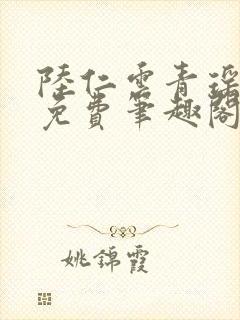 陸仁雲青瑤
免費筆趣閣
姚錦霞